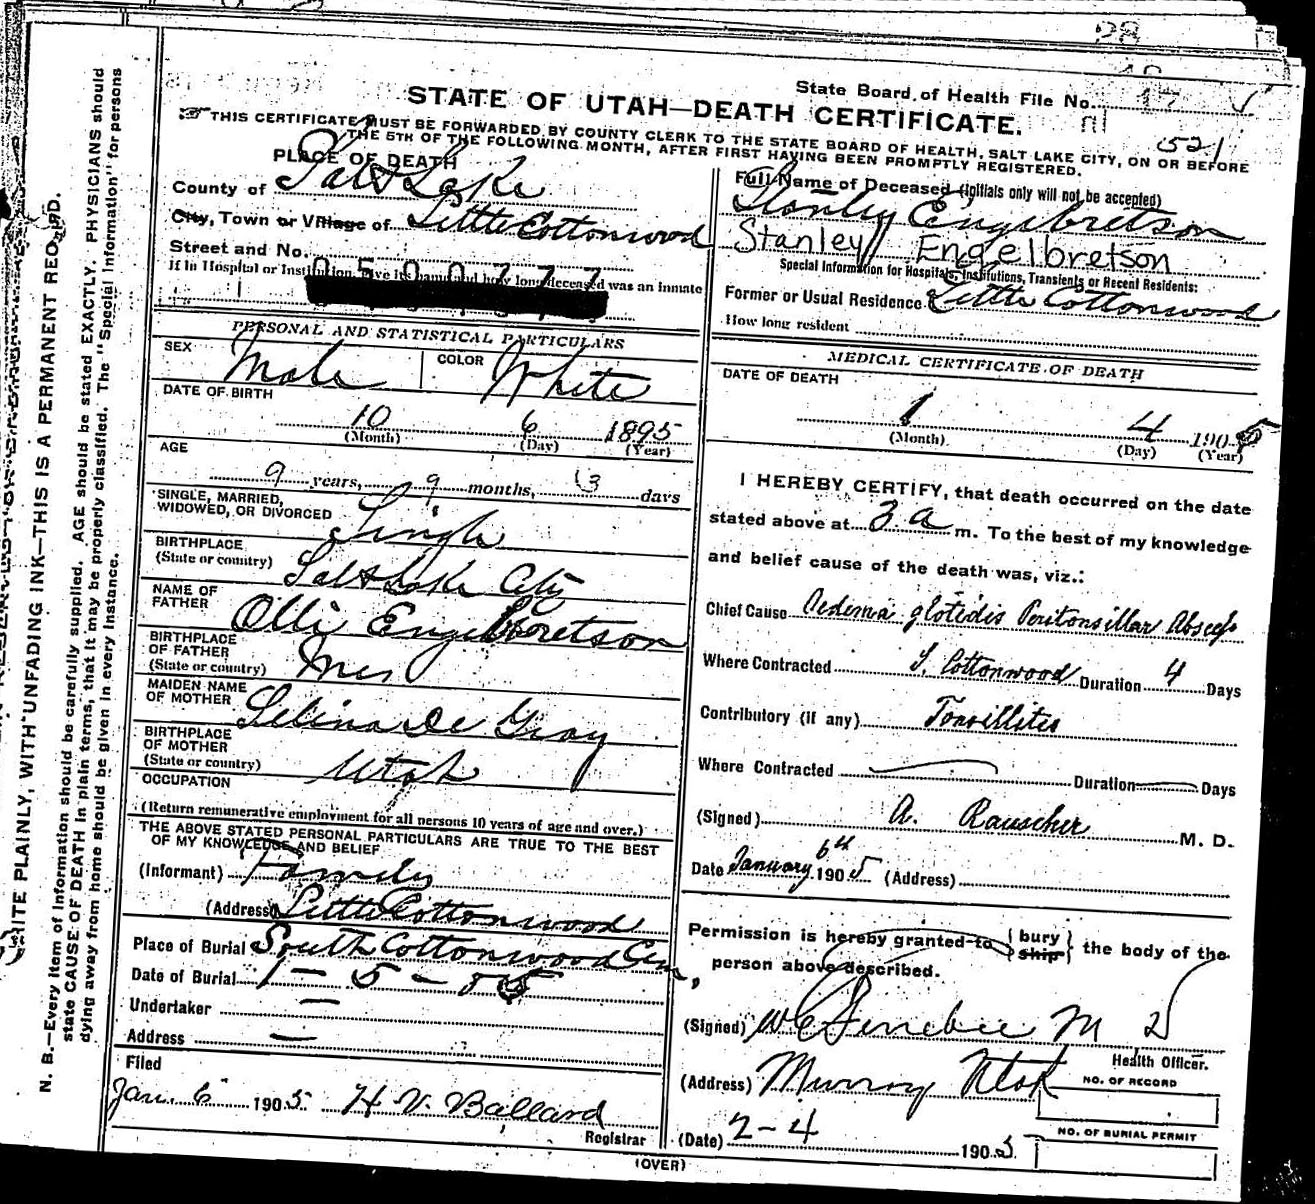 State Board of Health File No. 17
STATE OF UTAH—DEATH CERTIFICATE.
521
THIS CERTIFICATE MUST BE FORWARDED BY COUNTY CLERK TO THE STATE BOARD OF HEALTH, SALT LAKE CITY, ON OR BEFORE
THE 5TH OF THE FOLLOWING MONTH, AFTER FIRST HAVING BEEN PROMPTLY REGISTERED.
PLACE OF DEATH
County of Salt Lake
City, Town or Village of Little Cottonwood
Street and No.
If in Hospital or Institution, give its name and how long deceased was an inmate
0500777
PERSONAL AND STATISTICAL PARTICULARS
SEX Male COLOR White
DATE OF BIRTH
10 6 1895
(Month) (Day) (Year)
AGE
9 years, 9 months, 3 days
SINGLE, MARRIED, WIDOWED, OR DIVORCED Single
BIRTHPLACE (State or country) Salt Lake City
NAME OF FATHER Olli Engelbretson
BIRTHPLACE OF FATHER (State or country)
MAIDEN NAME OF MOTHER Selina De Gray
BIRTHPLACE OF MOTHER (State or country) Utah
OCCUPATION
(Return remunerative employment for all persons 10 years of age and over.)
THE ABOVE STATED PERSONAL PARTICULARS ARE TRUE TO THE BEST
OF MY KNOWLEDGE AND BELIEF
(Informant) Family
(Address) Little Cottonwood
Place of Burial South Cottonwood Cem,
Date of Burial 1-5-05
Undertaker —
Address —
Filed
Jan. 6 1905 H. V. Ballard
Registrar
Full Name of Deceased (Initials only will not be accepted)
Stanley Engebretson
Stanley Engelbretson
Special Information for Hospitals, Institutions, Transients or Recent Residents:
Former or Usual Residence Little Cottonwood
How long resident
MEDICAL CERTIFICATE OF DEATH
DATE OF DEATH
1 4 1905
(Month) (Day) (Year)
I HEREBY CERTIFY, that death occurred on the date
stated above at 3 a m. To the best of my knowledge
and belief cause of the death was, viz.:
Chief Cause Oedema glotidis Peritonsillar Abscess
Where Contracted S. Cottonwood Duration 4 Days
Contributory (if any) Tonsillites
Where Contracted — Duration — Days
(Signed) A. Rauscher M. D.
Date January 6th 1905 (Address)
Permission is hereby granted to { bury ship } the body of the
person above described.
(Signed) M D
Health Officer.
(Address) Murray Utah
NO. OF RECORD
NO. OF BURIAL PERMIT
(Date) 2-4 1905
(OVER)
N. B.—Every item of Information should be carefully supplied. AGE should be stated EXACTLY. PHYSICIANS should
state CAUSE OF DEATH in plain terms, that it may be properly classified. The "Special Information" for persons
dying away from home should be given in every instance.
WRITE PLAINLY, WITH UNFADING INK—THIS IS A PERMANENT RECORD.